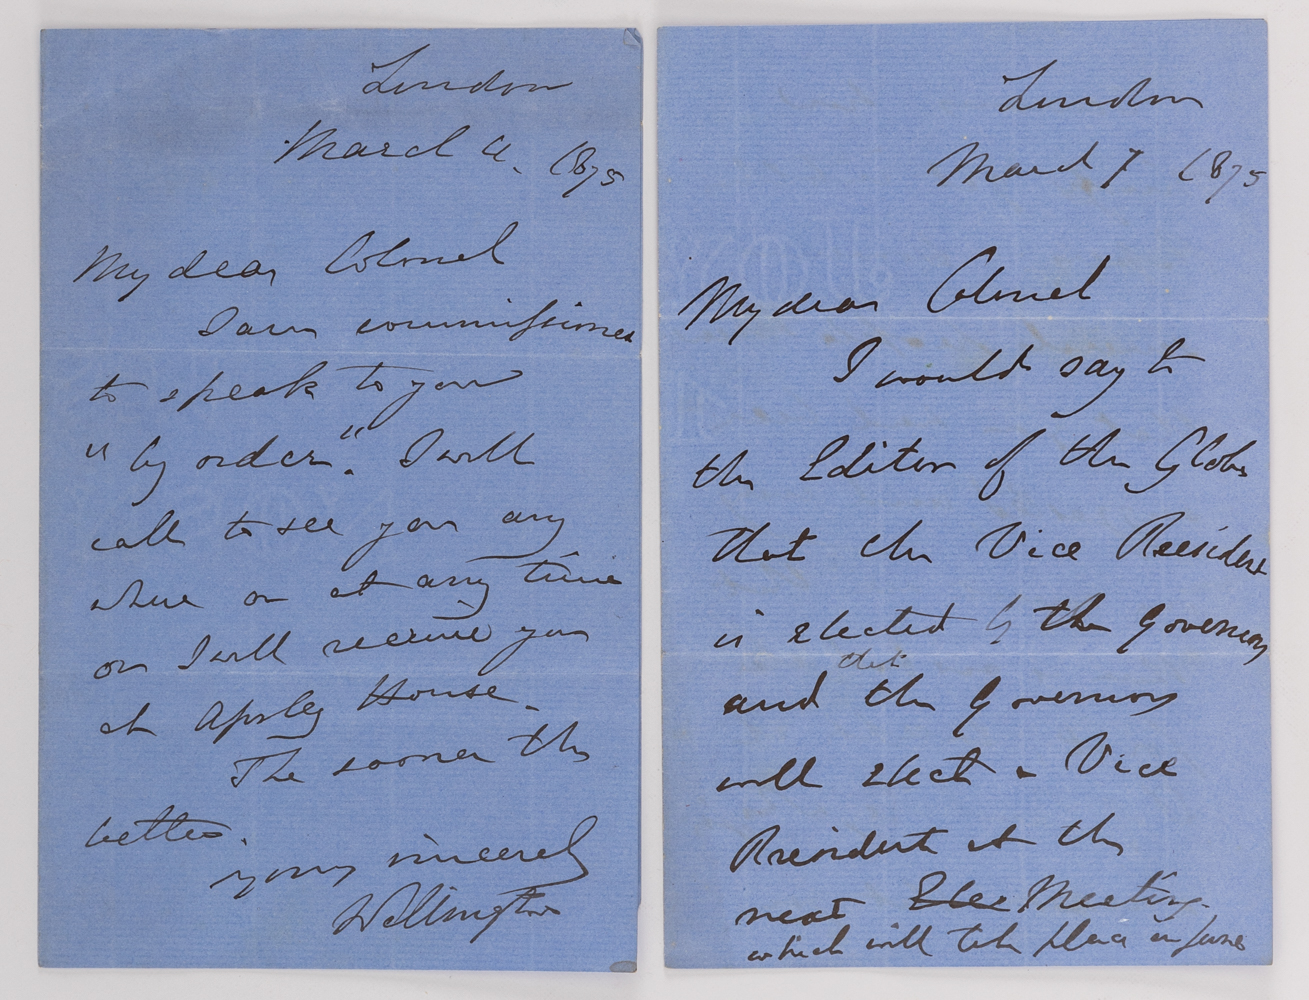 London
March 4. 1875
My dear Colonel
I am commissioned
to speak to you
"by order". I will
call to see you any
where or at any time
or I will receive you
at Apsley House.
The sooner the
better.
Yours sincerely
Wellington
London
March 7 1875
My dear Colonel
I would say to
the Editor of the Globe
that the Vice President
is elected by the Governors
that
and the Governors
will elect a Vice
President at the
next Elec Meeting.
which will take place in June